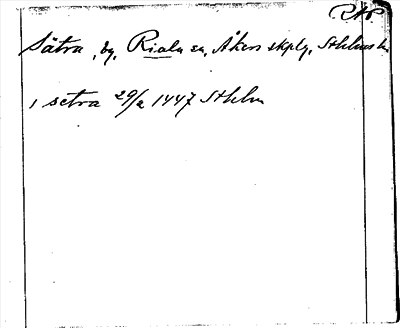 RAP
Sätra, by, Riala sn, Åkers skplg, Sthlms l.
, setra 29/2 1447 Sthlm